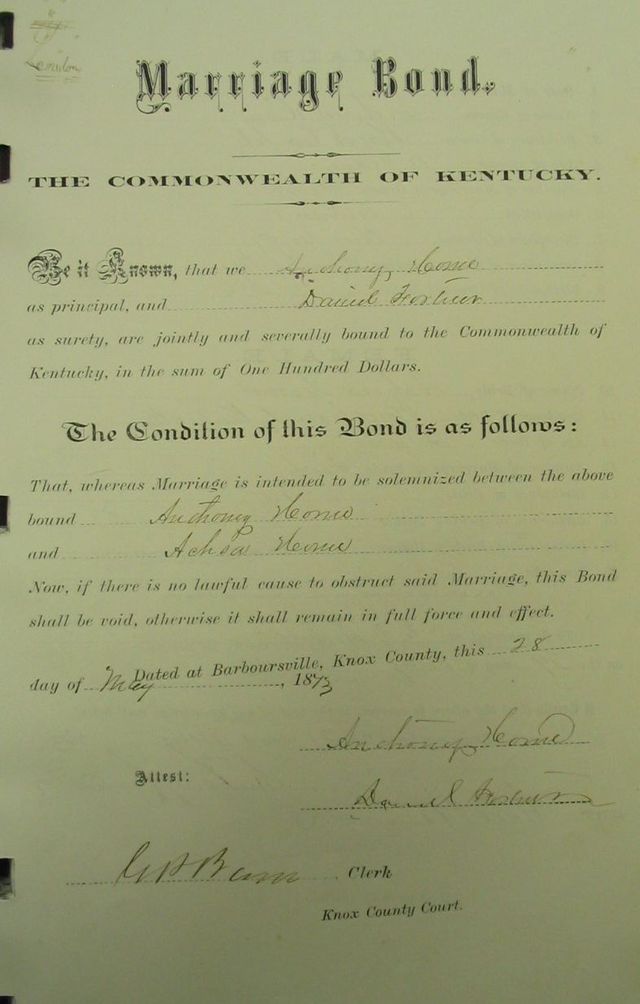 London
Marriage Bond.
THE COMMONWEALTH OF KENTUCKY.
Be it Known, that we Anthony Horne
as principal, and Daniel
as surety, are jointly and severally bound to the Commonwealth of
Kentucky, in the sum of One Hundred Dollars.
The Condition of this Bond is as follows:
That, whereas Marriage is intended to be solemnized between the above
bound Anthony Horne
and Achsa Horne
Now, if there is no lawful cause to obstruct said Marriage, this Bond
shall be void, otherwise it shall remain in full force and effect.
Dated at Barboursville, Knox County, this 28
day of May, 1873
Anthony Horne
Attest:
Daniel
Clerk
Knox County Court.